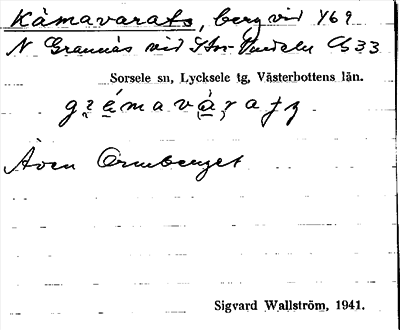 Kåmavarats, berg vid Y69
N Grannäs vid Stor-Vindeln C533
Sorsele sn, Lycksele tg, Västerbottens län.
Även Ormberget
Sigvard Wallström, 1941.